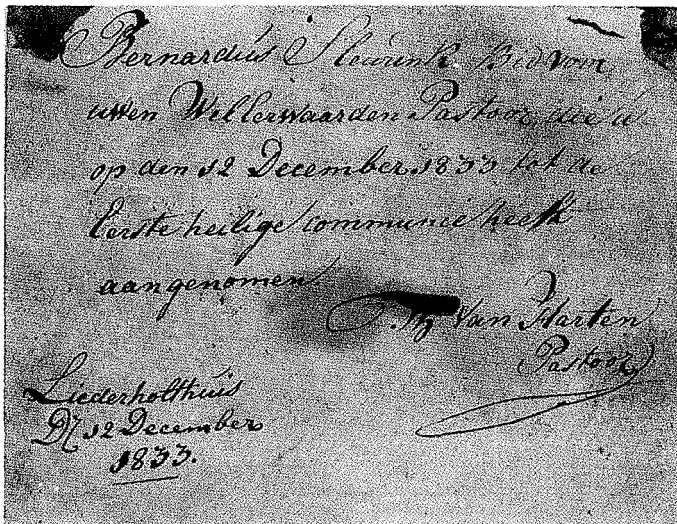 Bernardus Sleurink Bid voor
uwen Wel Eerwaarden Pastoor, die u
op den 12 December 1833 tot de
Eerste heilige communie heeft
aangenomen.
Van Harten
Pastoor
Liederholthuis
12 December
1833.